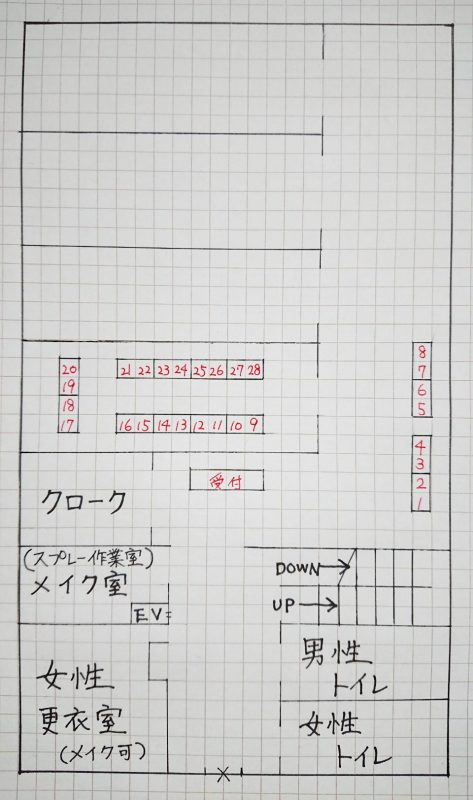 8
7
6
5
4
3
2
1
20
19
18
17
21 22 23 24 25 26 27 28
16 15 14 13 12 11 10 9
受付
クローク
(スプレー作業室)
メイク室
EV
DOWN
UP
男性
トイレ
女性
トイレ
女性
更衣室
(メイク可)